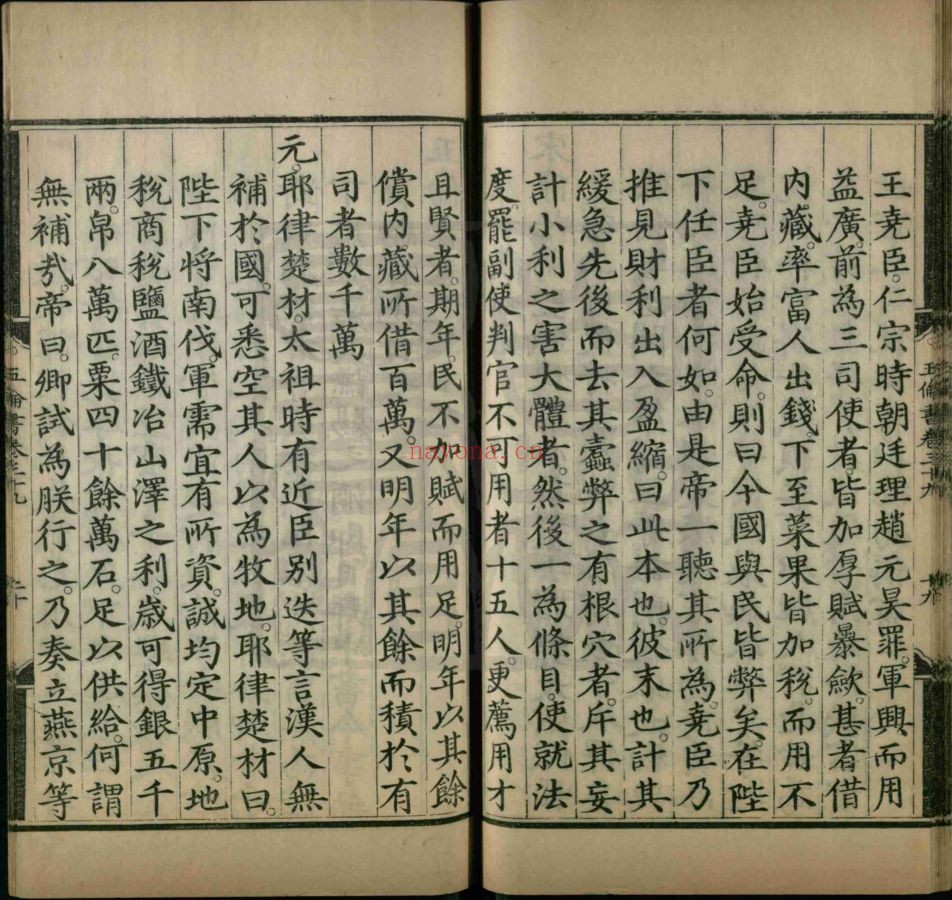 王堯臣仁宗時朝廷理趙元昊罪軍興而用
益廣前為三司使者皆加厚賦暴歛甚者借
内藏率富人出錢下至菜果皆加稅而用不
足堯臣始受命則曰今國與民皆弊矣在陛
下任臣者何如由是帝一聽其所為堯臣乃
推見財利出入盈縮曰此本也彼末也計其
緩急先後而去其蠹弊之有根穴者斥其妄
計小利之害大體者然後一為條目使就法
度罷副使判官不可用者十五人更薦用才
且賢者期年民不加賦而用足明年以其餘
償内藏所借百萬又明年以其餘而積於有
司者數千萬
元耶律楚材太祖時有近臣别迭等言漢人無
補於國可悉空其人以為牧地耶律楚材曰
陛下將南伐軍需宜有所資誠均定中原地
稅商稅鹽酒鐵冶山澤之利歲可得銀五千
兩帛八萬匹粟四十餘萬石足以供給何謂
無補㢤帝曰卿試為朕行之乃奏立燕京等
五倫書卷
nayona.cn